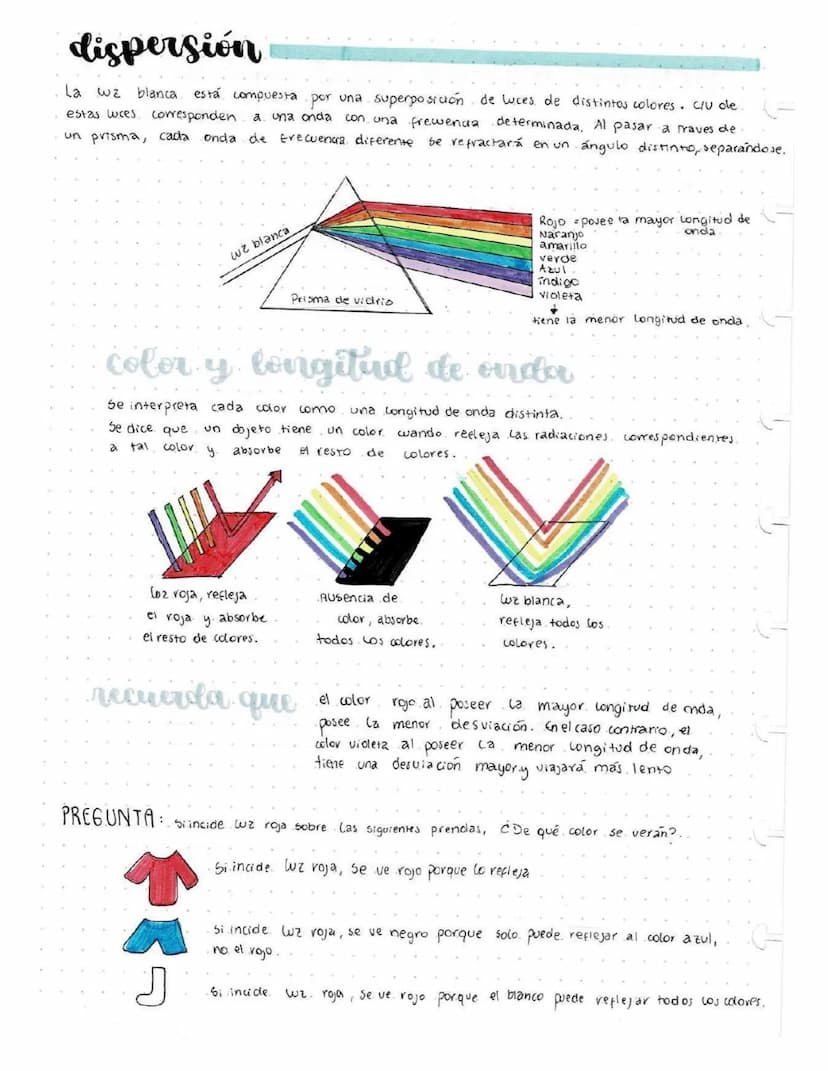 dispersión
La luz blanca está compuesta por una superposición de luces de distintos colores. c/u de
estas luces corresponden a una onda con una frecuencia determinada. Al pasar a traves de
un prisma, cada onda de frecuencia diferente se refractará en un ángulo distinto, separandose.
luz blanca
Prisma de vidrio
Rojo = posee la mayor longitud de
onda
Naranjo
amarillo
verde
Azul
índigo
violeta
tiene la menor longitud de onda.
color y longitud de onda
Se interpreta cada color como una longitud de onda distinta.
Se dice que un objeto tiene un color cuando refleja las radiaciones correspondientes
a tal color y absorbe el resto de colores.
Luz roja, refleja
el roja y absorbe
el resto de colores.
Ausencia de
color, absorbe
todos los colores.
Luz blanca,
refleja todos los
colores.
recuerda que
el color rojo al poseer la mayor longitud de onda,
posee la menor desviación. En el caso contrario, el
color violeta al poseer la menor longitud de onda,
tiene una desviación mayor y viajará más lento
PREGUNTA: si incide luz roja sobre las siguientes prendas, ¿De qué color se verán?
Si incide luz roja, se ve rojo porque lo refleja
Si incide luz roja, se ve negro porque solo puede reflejar al color azul,
no el rojo.
Si incide luz roja, se ve rojo porque el blanco puede reflejar todos los colores.